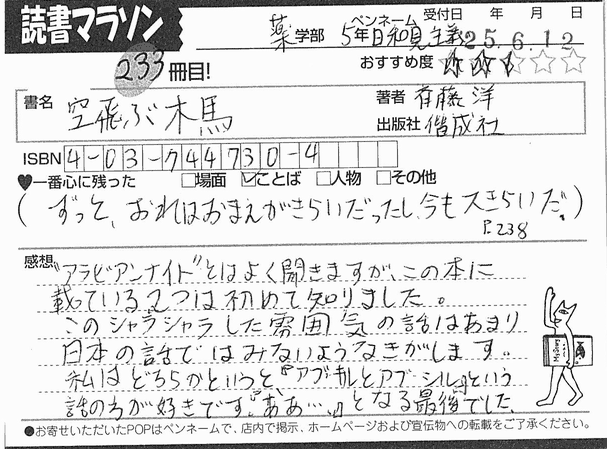 読書マラソン
薬学部 5年 ペンネーム 日和見主義 受付日 年 月 日 25.6.12
233冊目!
おすすめ度 ☆☆☆☆☆
書名 空飛ぶ木馬
著者 斉藤 洋
出版社 偕成社
ISBN 4-03-744730-4
♥一番心に残った □場面 ☑ことば □人物 □その他
(ずっと、おれはおまえがきらいだったし、今も大きらいだ。)
P.238
感想 "アラビアンナイト"とはよく聞きますが、この本に
載っている2つは初めて知りました。
このシャラシャラした雰囲気の話はあまり
日本の話ではみないようなきがします。
私はどちらかというと、『アブ・キルとアブ・シル』という
話の方が好きです。『ああ…』となる最後でした。
●お寄せいただいたPOPはペンネームで、店内で掲示、ホームページおよび宣伝物への転載をご了承ください。